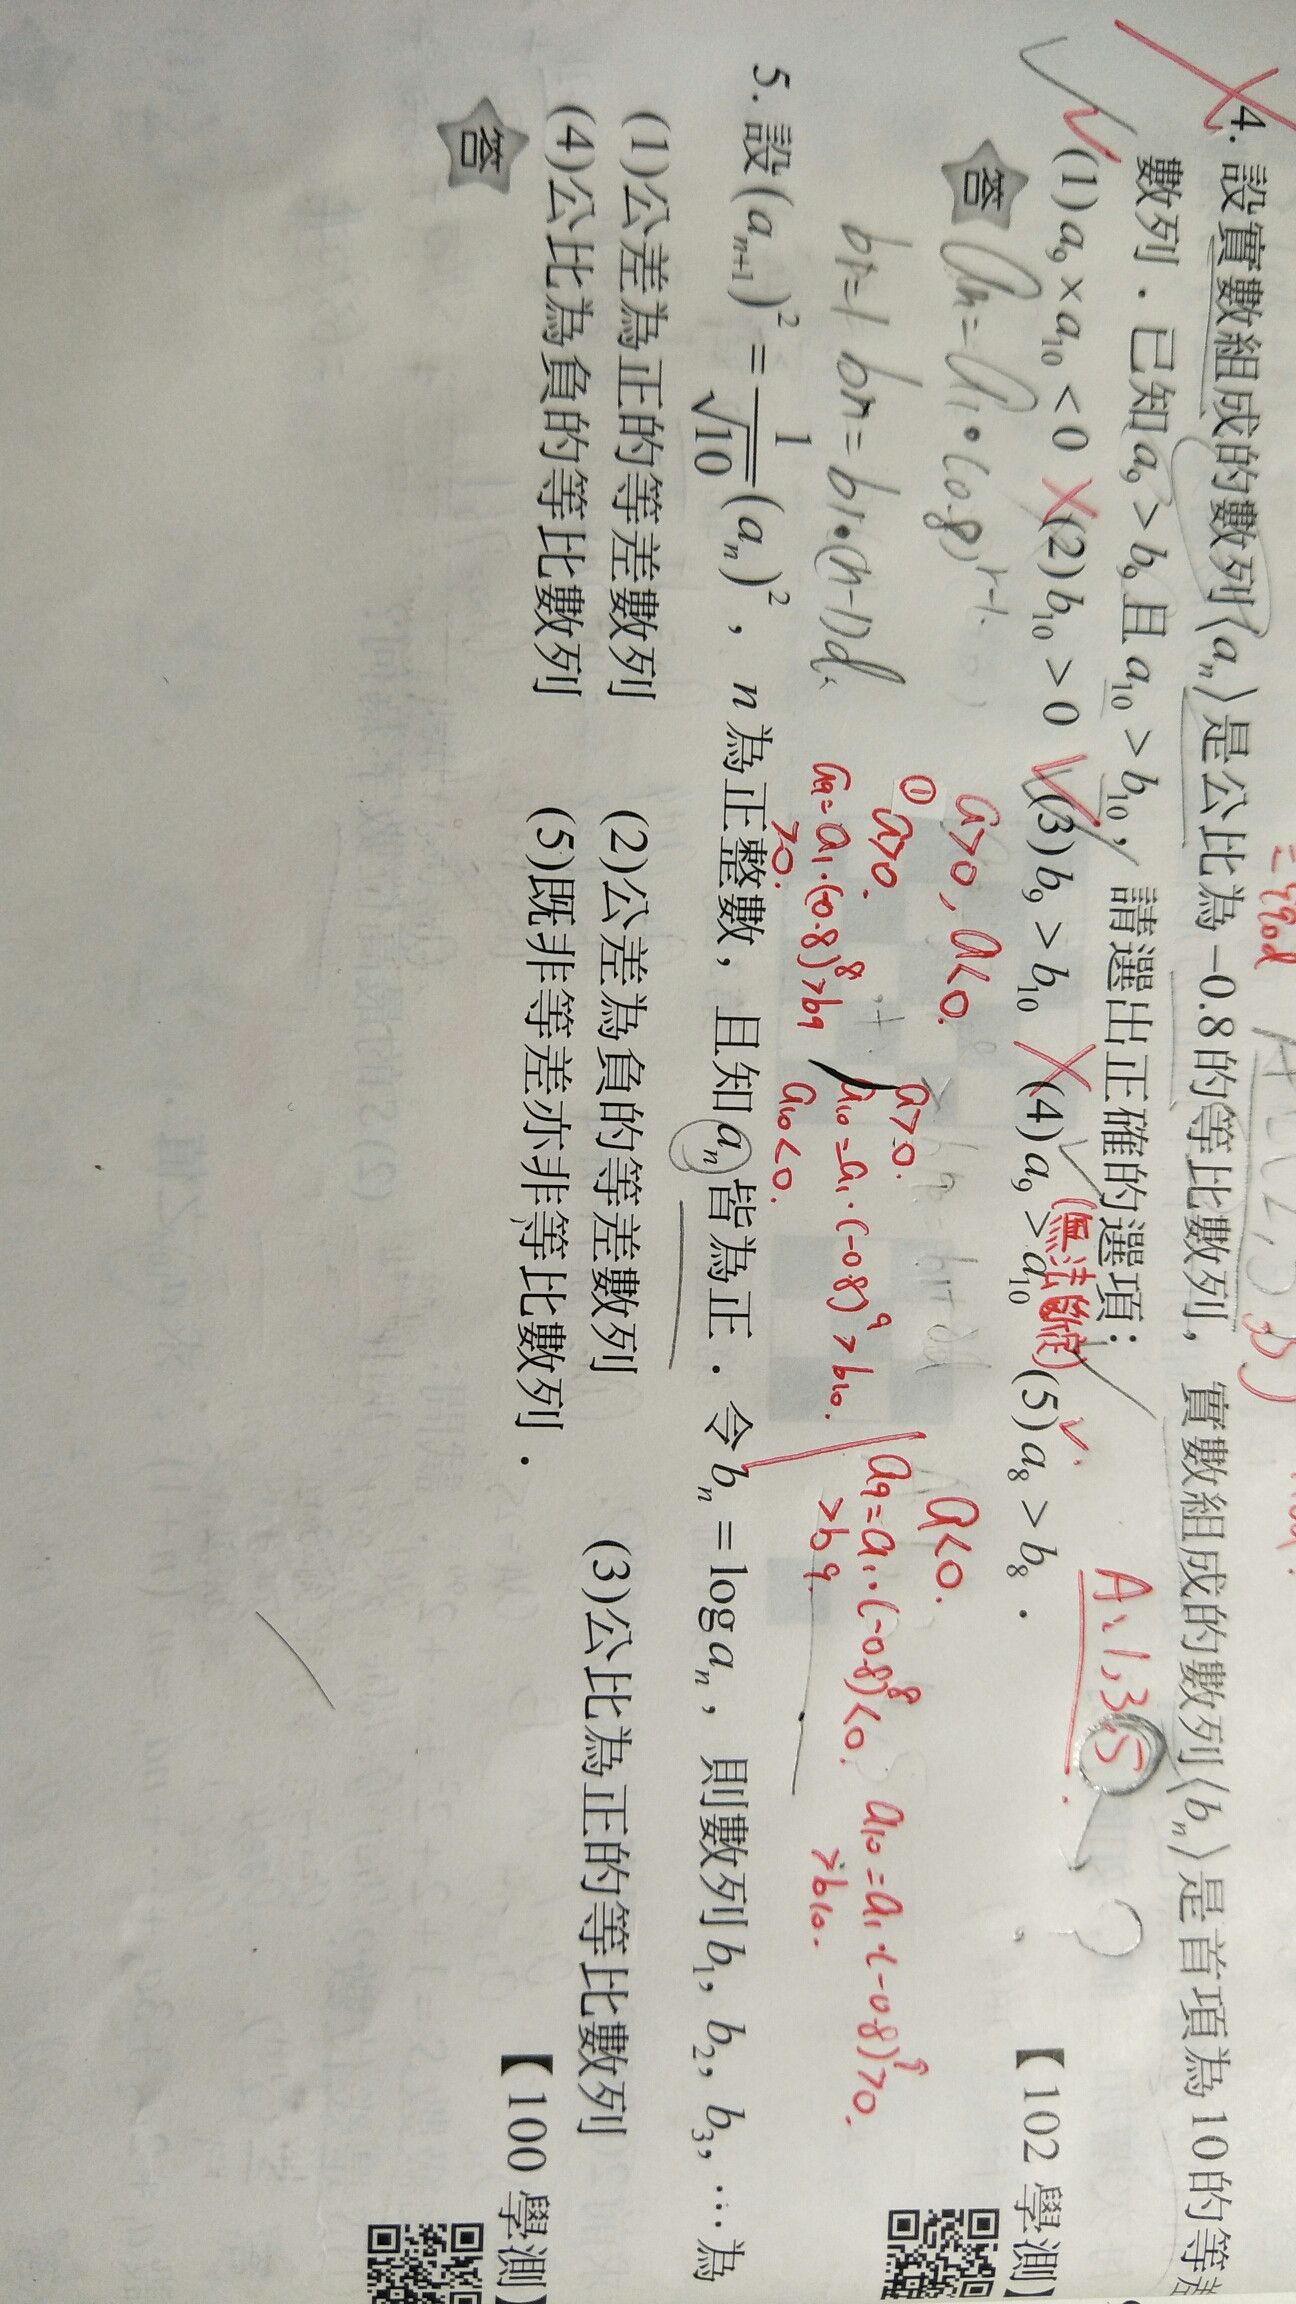 4. 設實數組成的數列⟨aₙ⟩是公比為 −0.8 的等比數列，實數組成的數列⟨bₙ⟩是首項為 10 的等差
數列．已知 a₉ > b₉ 且 a₁₀ > b₁₀，請選出正確的選項：
A、1,3,5
?
(無法斷定)
(1) a₉ × a₁₀ < 0 (2) b₁₀ > 0 (3) b₉ > b₁₀ (4) a₉ > a₁₀ (5) a₈ > b₈．
【102 學測】
答
a>0, a<0.
① a>0.
a₉ = a₁·(-0.8)⁸ > b₉
>0.
a>0.
a₁₀ = a₁·(-0.8)⁹ > b₁₀.
a₁₀<0.
a<0.
a₉ = a₁·(-0.8)⁸ <0.
>b₉.
a₁₀ = a₁·(-0.8)⁹ >0.
>b₁₀.
5. 設 (aₙ₊₁)² = 1/√10 (aₙ)²，n 為正整數，且知 aₙ 皆為正．令 bₙ = log aₙ，則數列 b₁，b₂，b₃，⋯ 為
(1)公差為正的等差數列 (2)公差為負的等差數列 (3)公比為正的等比數列
(4)公比為負的等比數列 (5)既非等差亦非等比數列．
【100 學測】
答